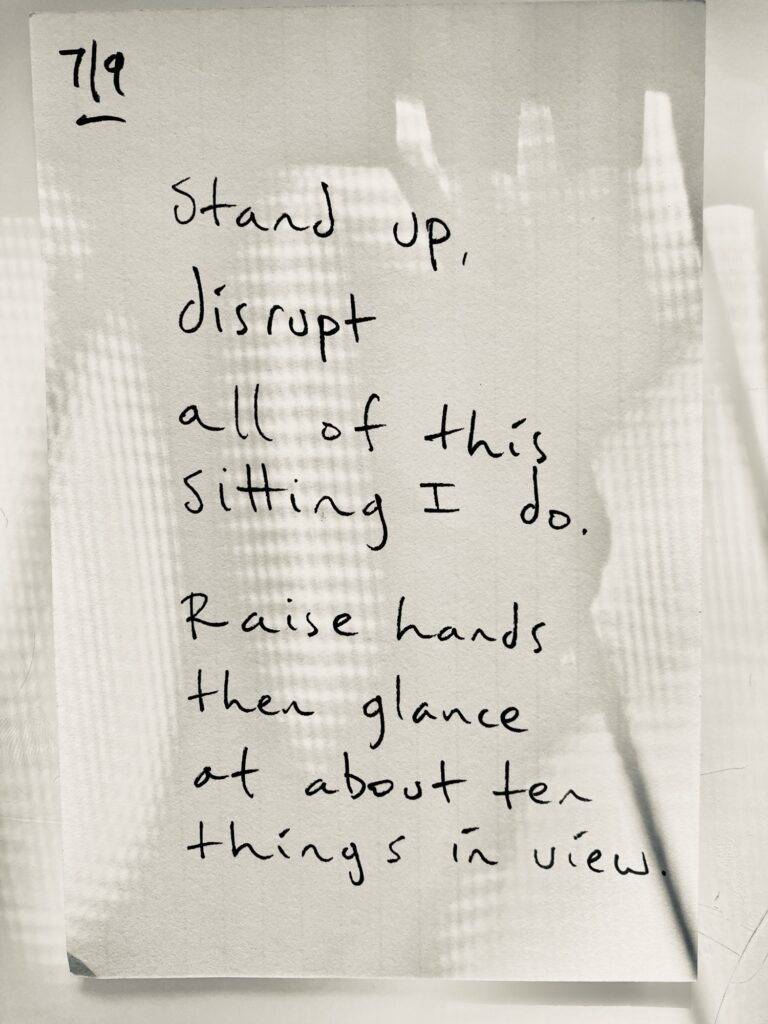 7/9
Stand up,
disrupt
all of this
sitting I do.
Raise hands
then glance
at about ten
things in view.